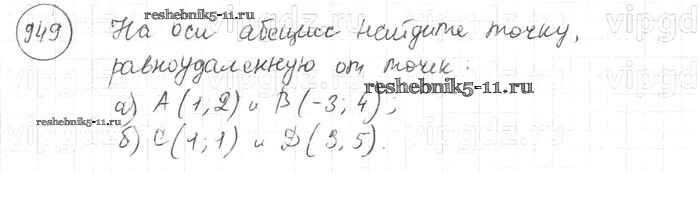 949 На оси абсцисс найдите точку,
равноудаленную от точек:
а) A(1,2) и B(-3;4);
б) C(1;1) и D(3,5).
reshebnik5-11.ru
reshebnik5-11.ru
reshebnik5-11.ru